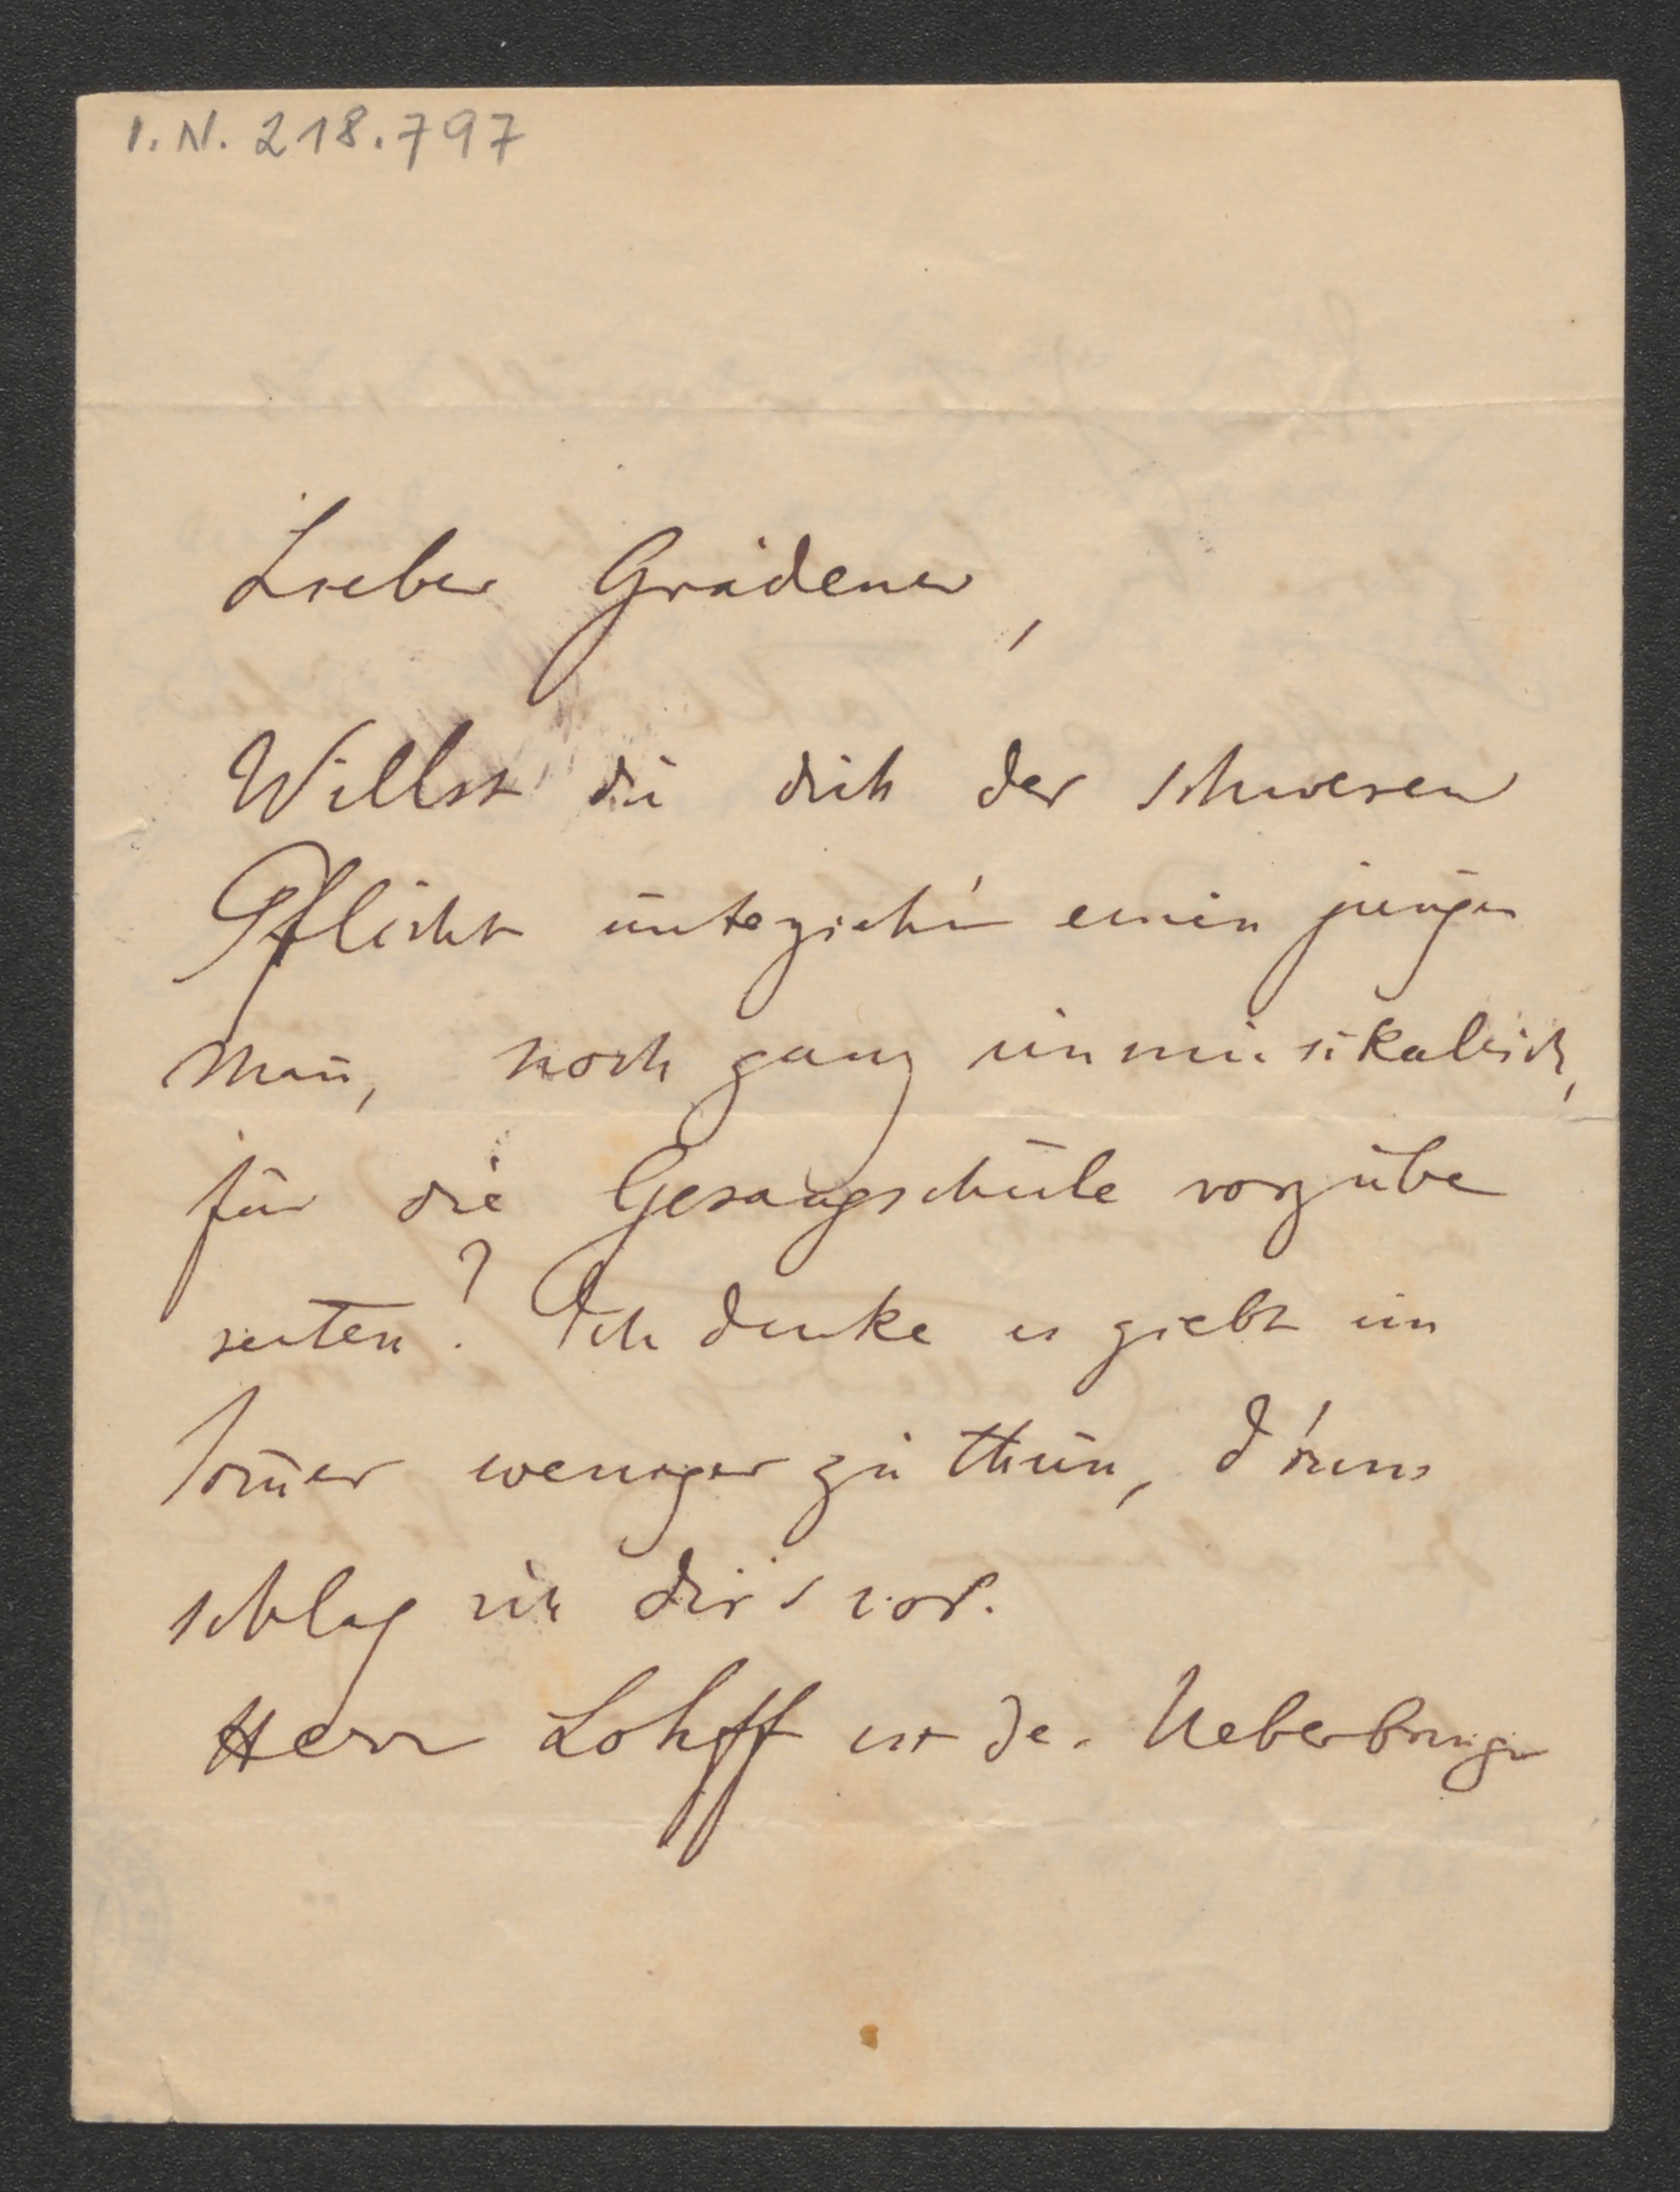 I.N. 218.797
Lieber Grädener,
Willst du dich der schweren
Pflicht unterziehn einen jungen
Mañ, noch ganz unmusikalisch,
für die Gesangschule vorzube
reiten? Ich denke es giebt im
Som̄er weniger zu thun, d'rum
schlag ich dir's vor.
Herr Lohff ist der Ueberbringer